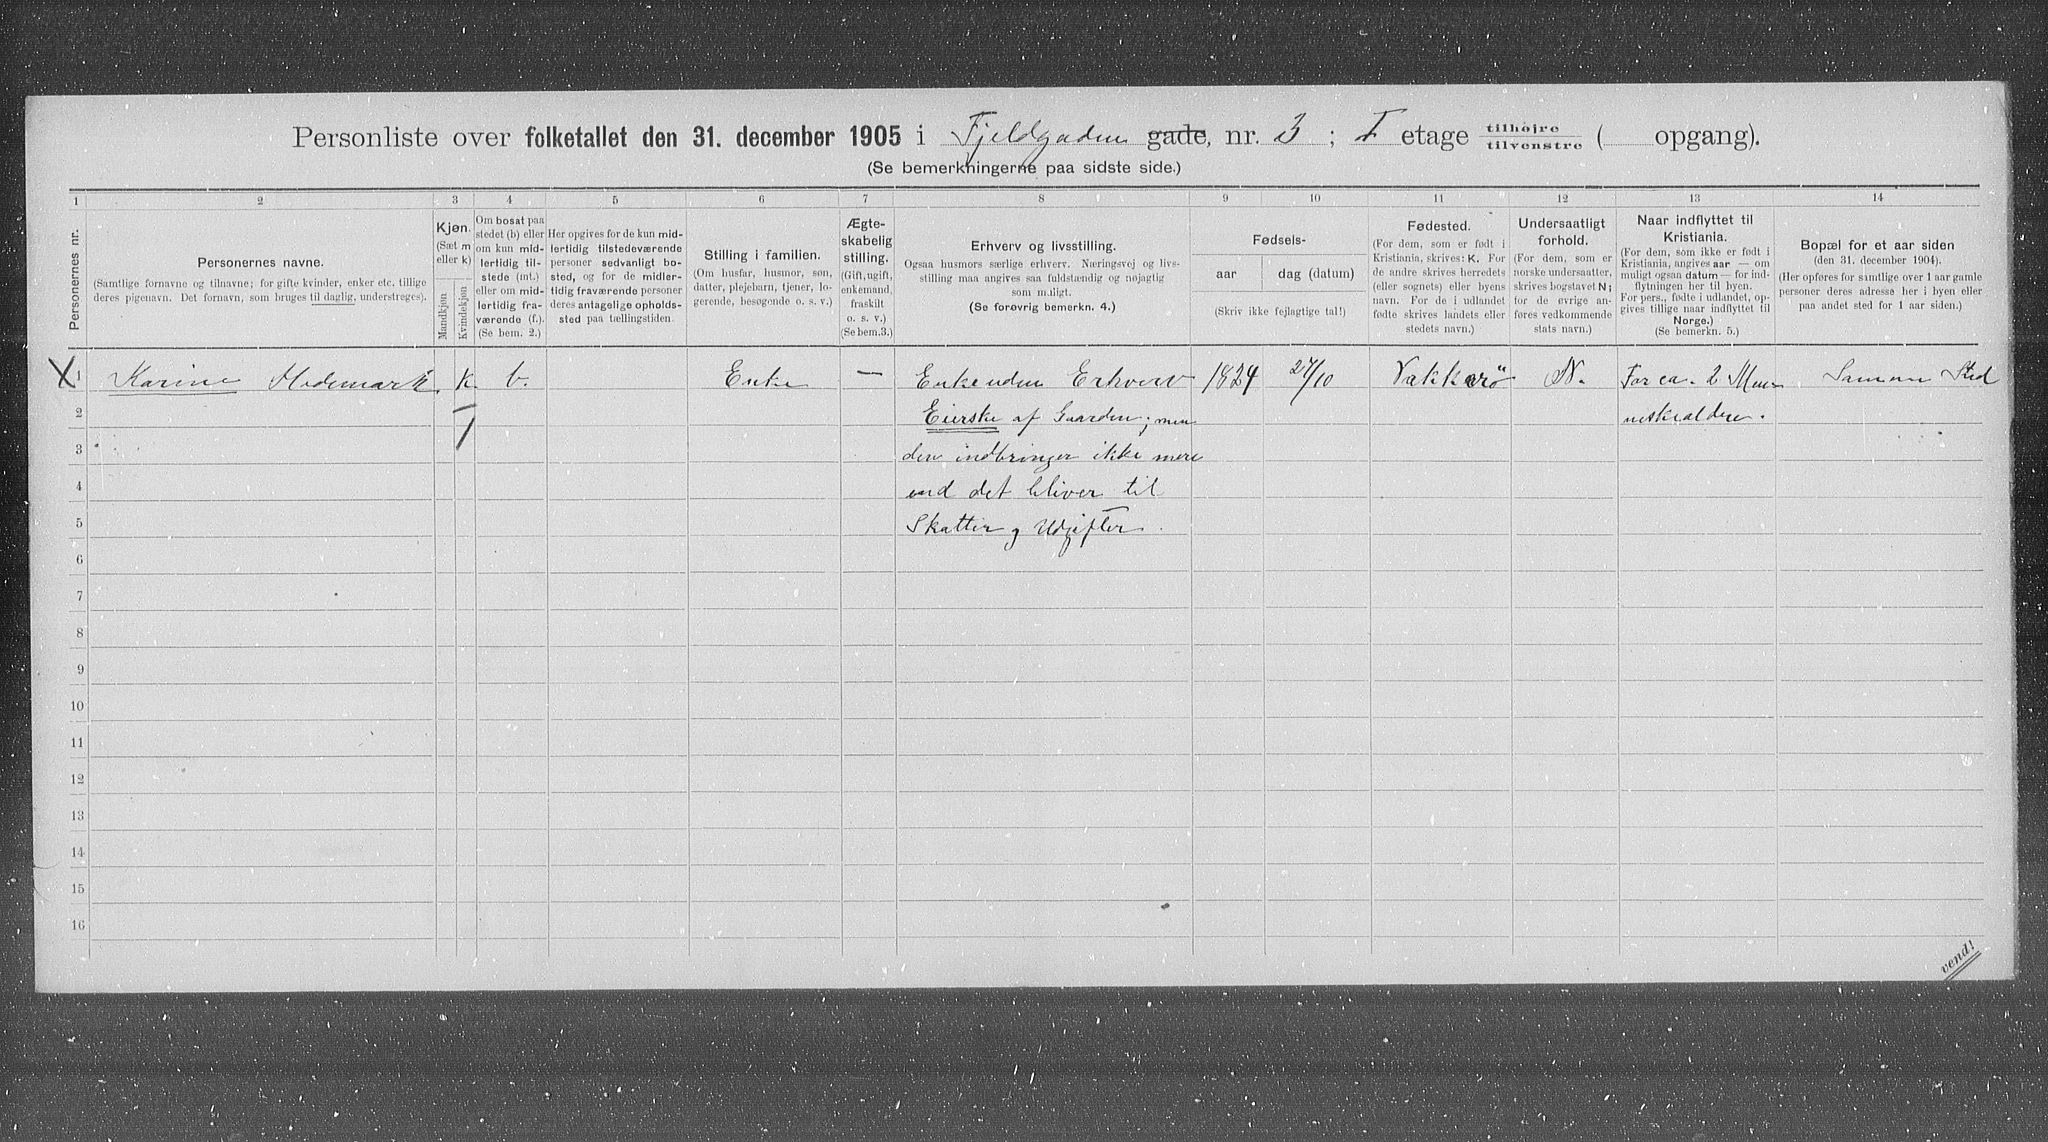 Personliste over folketallet den 31. december 1905 i Fjeldgaden gade, nr. 3 ; I etage tilhøjre tilvenstre ( opgang).
(Se bemerkningerne paa sidste side.)
1 2 3 4 5 6 7 8 9 10 11 12 13 14
Personernes nr.
Personernes navne.
(Samtlige fornavne og tilnavne; for gifte kvinder, enker etc. tillige
deres pigenavn. Det fornavn, som bruges til daglig, understreges).
Kjøn.
(Sæt m
eller k)
Mandkjøn
Kvindekjøn
Om bosat paa
stedet (b) eller
om kun mid-
lertidig til-
stede (mt.)
eller om mid-
lertidig fra-
værende (f.).
(Se bem. 2.)
Her opgives for de kun mid-
lertidig tilstedeværende
personer sedvanligt bo-
sted, og for de midler-
tidig fraværende personer
deres antagelige opholds-
sted paa tællingstiden.
Stilling i familien.
(Om husfar, husmor, søn,
datter, plejebarn, tjener, lo-
gerende, besøgende o. s. v.)
Ægte-
skabelig
stilling.
(Gift, ugift,
enkemand,
fraskilt
o. s. v.)
(Se bem.3.)
Erhverv og livsstilling.
Ogsaa husmors særlige erhverv. Næringsvej og livs-
stilling maa angives saa fuldstændig og nøjagtig
som muligt.
(Se forøvrig bemerkn. 4.)
Fødsels-
aar
dag (datum)
(Skriv ikke fejlagtige tal!)
Fødested.
(For dem, som er født i
Kristiania, skrives: K. For
de andre skrives herredets
(eller sognets) eller byens
navn. For de i udlandet
fødte skrives landets eller
stedets navn.)
Undersaatligt
forhold.
(For dem, som er
norske undersaatter,
skrives bogstavet N;
for de øvrige an-
føres vedkommende
stats navn.)
Naar indflyttet til
Kristiania.
(For dem, som ikke er født i
Kristiania, angives aar — om
muligt ogsaa datum — for ind-
flytningen her til byen.
For pers., fødte i udlandet, op-
gives tillige naar indflyttet til
Norge.)
(Se bemerkn. 5.)
Bopæl for et aar siden
(den 31. december 1904).
(Her opføres for samtlige over 1 aar gamle
personer deres adresse her i byen eller
paa andet sted for 1 aar siden.)
X 1 Karine Hedemark k. b. Enke — Enke uden Erhverv 1824 27/10 Vækkerø N. For ca. 2 Men Samme Sted
2 Eierske af Gaarden; men neskealdere.
3 den indbringer ikke mere
4 end det bliver til
5 Skatter og Udgifter.
6
7
8
9
10
11
12
13
14
15
16
vend!